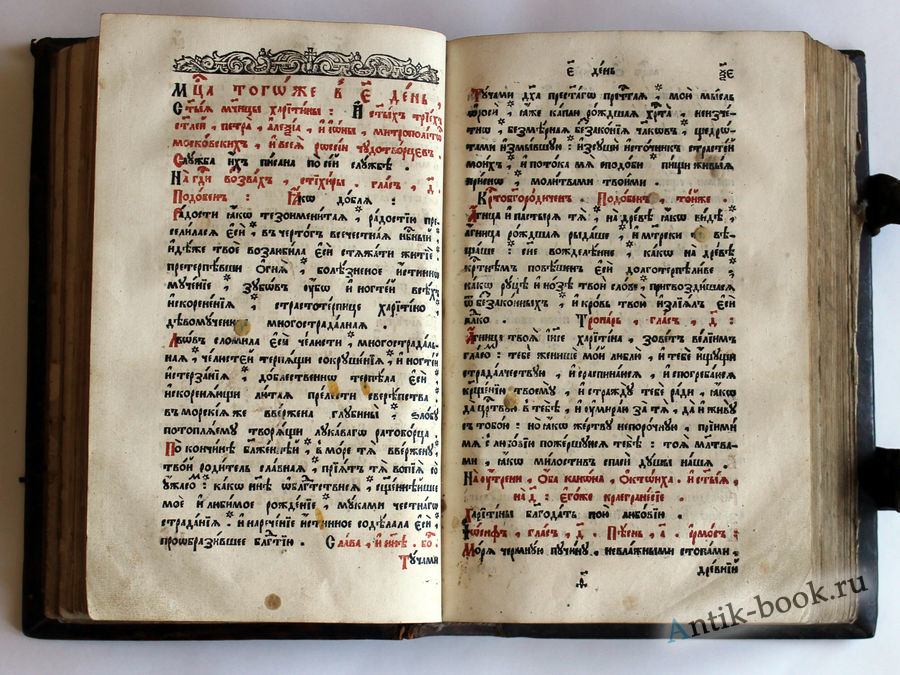 Мц҃а тогѡ́же в҃ є҃ де́нь,
Ст҃ы́ѧ мч҃нцы харїти́ны: И҆ ст҃ы́хъ трїе́хъ
ст҃лей, петра̀, а҆леѯі́а, и҆ і҆ѡ́ны, митрополі́тѡвъ
моско́вскихъ, и҆ всеѧ̀ рѡссі́и чꙋдотво́рцєвъ.
Слꙋ́жба и҆хъ писана по се́й слꙋ́жбѣ.
На гдⷭ҇и возва́хъ, стїхи́ры. гла́съ, д҃.
Подо́бенъ: Ꙗ҆́кѡ до́блѧ:
Ра́дости ꙗ҆́кѡ тезоимени́таѧ, ра́достїи пре
сели́ласѧ є҆сѝ, въ черто́гъ всечестна́ѧ нб҃ный,
и҆дѣ́же твоѐ возлюби́ла є҆сѝ стѧжа́ти житїѐ
претерпѣ́вши ѻ҆гнѧ̀, болѣ́зненое и҆́стинно
мꙋче́нїе, зꙋбѡ́въ ꙋ҆́бѡ и҆ ногте́й всѣ́хъ
и҆скорене́нїѧ, страстоте́рпице харїти́но,
дѣвомꙋ́ченице многострада́лнаѧ.
Львѡ́въ сломи́ла є҆сѝ че́люсти, многострада́ль
наѧ, че́люстей терпѧ́щи сокрꙋше́нїѧ, и҆ ногте́й
и҆стерза́нїѧ, до́блественнѡ терпѣ́ла є҆сѝ,
и҆скоренѧ́ющи лю́таѧ пре́лести свирѣ́пства
въ морскі́ѧ же вве́ржена глꙋбины̀, ѕло́бꙋ
потоплѧ́емꙋ творѧ́щи лꙋка́ваго ратобо́рца.
По кончи́нѣ бл҃же́ннѣй, въ мо́ре тѧ̀ вве́рженꙋ,
тво́й роди́тель сла́внаѧ, прїѧ́тъ тѧ̀ вопїѧ̀ со
ꙋ҆́жасомъ: ка́кѡ нн҃ѣ ѡ҆бл҃гтⷭ҇вїе, сщ҃е́ннѣйшее
моѐ и҆ люби́мое рожде́нїе, мꙋ́ками честна́гѡ
страда́нїѧ. и҆ нарече́нїе и҆́стинное содѣ́лала є҆сѝ,
проѡбрази́вшее бл҃гтⷭ҇їю. Сла́ва, и҆ нн҃ѣ. бо҃:
Тꙋ́чами
є҃ де́нь
Тꙋ́чами дх҃а прест҃а́гѡ пречⷭ҇таѧ, мою̀ мы́сль
ѡ҆росѝ, ꙗ҆́же ка́плю ро́ждшаѧ хрⷭ҇та̀, неизче́т
нѡ, безмѣ́рнаѧ беззакѡ́нїѧ чл҃кѡвъ, щедро́
тами и҆змы́вшꙋю: и҆зсꙋшѝ и҆сто́чникъ страсте́й
мои́хъ, и҆ пото́ка мѧ̀ сподо́би пи́щи живы́ѧ
при́снѡ, моли́твами твои́ми.
Крⷭ҇тобг҃оро́диченъ. Подо́бенъ, то́йже.
А҆́гнца и҆ па́стырѧ тѧ̀, на дре́вѣ ꙗ҆́кѡ ви́дѣ,
а҆́гница ро́ждшаѧ рыда́ше, и҆ мт҃рски вѣ
ща́ше: сн҃е вожделѣ́нне, ка́кѡ на дре́вѣ
крⷭ҇тнѣмъ повѣ́шенъ є҆сѝ долготерпѣли́ве,
ка́кѡ рꙋ́цѣ и҆ но́зѣ твоѝ сло́ве, пригвозди́шасѧ
ѿ беззако́нныхъ, и҆ кро́вь твою̀ и҆злїѧ́лъ є҆сѝ
влⷣко. Тропа́рь, гла́съ, д҃:
А҆́гница твоѧ̀ і҆и҃се харїти́на, зове́тъ ве́лїимъ
гла́сѡ: тебѐ женишѐ мо́й люблю̀, и҆ тебѐ и҆́щꙋщи
страда́лчествꙋю, и҆ сраспина́юсѧ, и҆ спогреба́юсѧ
крⷳ҇ще́нїю твоемꙋ̀, и҆ стра́ждꙋ тебѐ ра́ди, ꙗ҆́кѡ
да црⷭ҇твꙋю въ тебѣ̀, и҆ ᲂу҆мира́ю за тѧ̀, да и҆ живꙋ̀
съ тобо́ю: но ꙗ҆́кѡ же́ртвꙋ непоро́чнꙋю, прїимѝ
мѧ̀ с любо́вїю поже́ршꙋюсѧ тебѣ̀: тоѧ̀ мл҃тва
ми, ꙗ҆́кѡ ми́лостивъ спасѝ дꙋ́шы на́шѧ.
На ᲂу҆́трени, ѻ҆́ба канѡ́на, Ѻ҆ктѡ́иха. и҆ ст҃ы́ѧ,
на д҃: Е҆гѡ́же краегране́сїе.
Харїти́ны благода́ть пою̀ любо́вїю.
І҆ѡ́сифъ, гла́съ, д҃. Пѣ́снь, а҃. і҆рмо́съ:
Мо́рѧ чермнꙋ́ю пꙋчи́нꙋ, невла́жными стопа́ми,
дре́внїй
Antik-book.ru